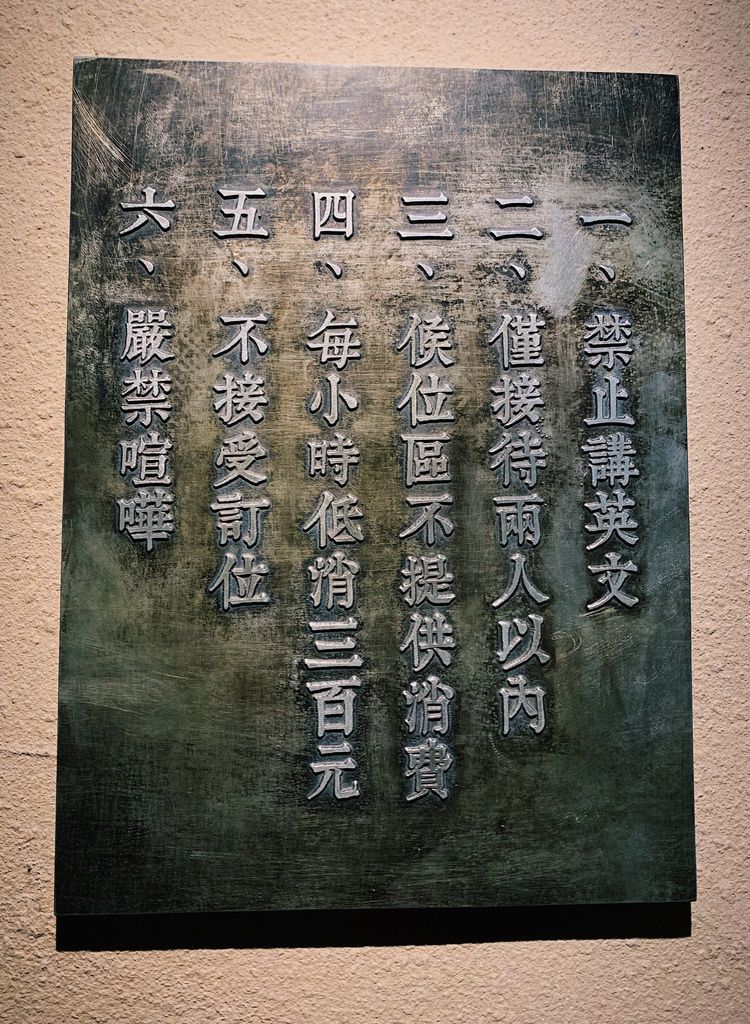 一、禁止講英文
二、僅接待兩人以內
三、候位區不提供消費
四、每小時低消三百元
五、不接受訂位
六、嚴禁喧嘩